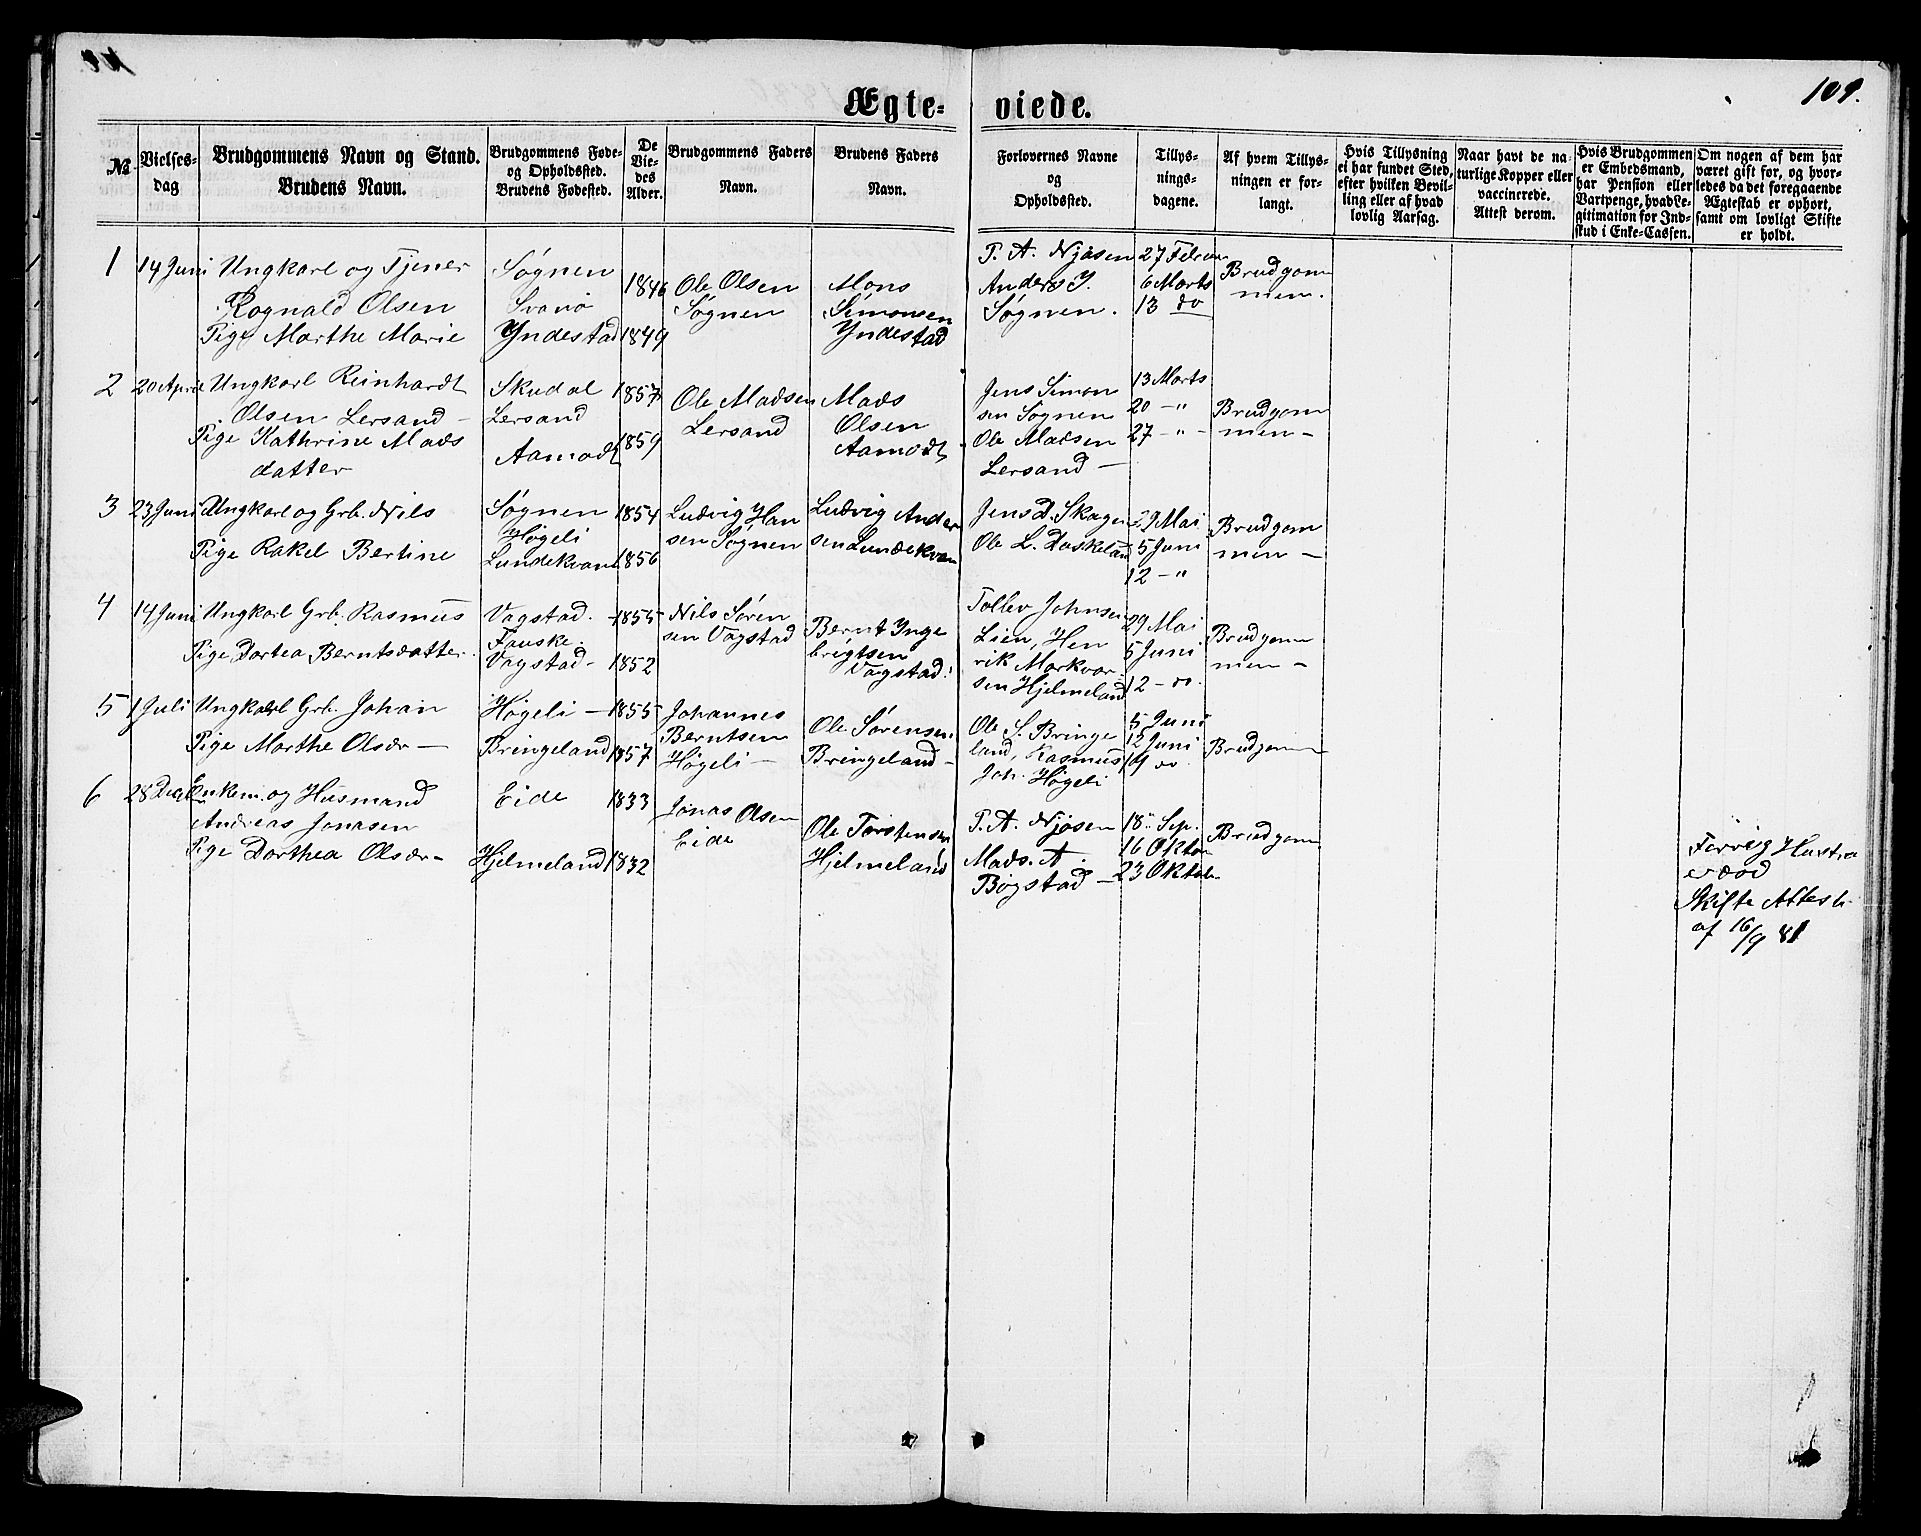 109.
Ægte- viede.
№
Vielses-
dag
Brudgommens Navn og Stand.
Brudens Navn.
Brudgommens Føde-
og Opholdssted.
Brudens Fødested.
De
Vie-
des
Alder.
Brudgommens Faders
Navn.
Brudens Faders
Navn.
Forlovernes Navne
og
Opholdssted.
Tillys-
nings-
dagene.
Af hvem Tillys-
ningen er for-
langt.
Hvis Tillysning
ei har fundet Sted,
efter hvilken Bevil-
ling eller af hvad
lovlig Aarsag.
Naar havt de na-
turlige Kopper eller
vaccinerede.
Attest derom.
Hvis Brudgommen
er Embedsmand,
har Pension eller
Vartpenge, hvad Le-
gitimation for Ind-
skud i Enke-Cassen.
Om nogen af dem har
været gift for, og hvor-
ledes da det foregaaende
Ægteskab er ophort,
samt om lovligt Skifte
er holdt.
1
14 Juni
Ungkarl og Tjener
Rognald Olsen
Pige Marthe Marie
Søgnen
Svanø
Yndestad
1846
1849
Ole Olsen
Søgnen
Mons
Simonsen
Yndestad
T. A. Njøsen
Anders J.
Søgnen.
27 Februar
6 Marts
13 do
Brudgom
men.
2
20 April
Ungkarl Reinhardt
Olsen Lersand -
Pige Kathrine Mads
datter
Skudal
Lersand
Aamodt
1857
1859
Ole Madsen
Lersand
Mads
Olsen
Aamodt
Jens Simon
sen Søgnen
Ole Madsen
Lersand -
13 Marts
20 - "
27 - " -
Brudgom
men -
3
23 Juni
Ungkarl og Grb. Nils
Pige Rakel Bertine
Søgnen
Høgeli
Lundekvam
1854
1856
Ludvig Han
sen Søgnen
Ludvig Ander
sen Lundekvam
Jens D. Skagen
Ole L. Daskeland
29 Mai
5 Juni
12 - "
Brudgom
men -
4
14 Juni
Ungkarl Grb. Rasmus
Pige Dortea Berntsdatter.
Vagstad.
Fauske
Vagstad -
1855
1852
Nils Søren
sen Vagstad
Bernt Inge
brigtsen
Vagstad.
Tollev Johnsen
Lien, Hen
rik Markvar
sen Hjelmeland
29 Mai
5 Juni
12 - do.
Brudgom
men -
5
1 Juli
Ungkarl Grb. Johan
Pige Marthe Olsdr -
Høgeli -
Bringeland
1855
1857
Johannes
Berntsen
Høgeli -
Ole Sørensen
Bringeland -
Ole S. Bringe
land, Rasmus
Joh. Høgeli
5 Juni
12 Juni
19 do
Brudgom
6
28 Decb
Enkem. og Husmand
Andreas Jonasen
Pige Dorthea Olsdr -
Eide
Hjelmeland
1833
1832
Jonas Olsen
Eide
Ole Torstensen
Hjelmeland
T. A. Njøsen
Mads. A.
Bøgstad -
18 Sep.
16 Oktbr
23 Oktbr.
Brudgom
Forrig Hustru
er død
Skifte Attest
af 16/9 81